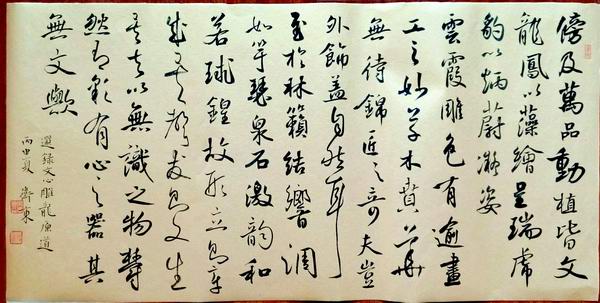 傍及萬品動植皆文
龍鳳以藻繪呈瑞虎
豹以炳蔚凝姿
雲霞雕色有逾畫
工之妙草木賁華
無待錦匠之奇夫豈
外飾蓋自然耳
至於林籟結響調
如竽瑟泉石激韻和
若球鍠故形立則章
成矣聲發則文生
矣夫以無識之物鬱
然有彩有心之器其
無文歟
選錄文心雕龍原道
丙申夏